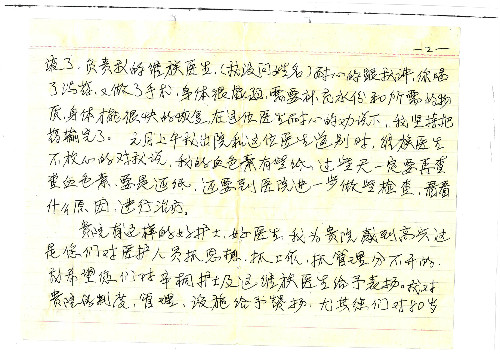 —2—
液了，负责我的维族医生，(我没问姓名)耐心的跟我讲，你喝
了泻药，又做了手术，身体很难过，需要补充水份和所需的物
质，身体才能很快的恢复，在这位医生耐心的劝说下，我坚持把
药输完了。元月上午我出院和这位医生道别时，维族医生
不放心的对我说，我的血色素有些低，过些天一定要再查
查血色素，要是还低，还要到医院进一步做些检查，看看
什么原因，进行治疗。
贵院有这样的好护士，好医生，我为贵院感到高兴，这
是你们对医护人员抓思想，抓工作，抓管理分不开的，
我希望你们对辛桐护士及这维族医生给予表扬。我对
贵院的制度，管理，设施给予赞扬，尤其你们对80岁